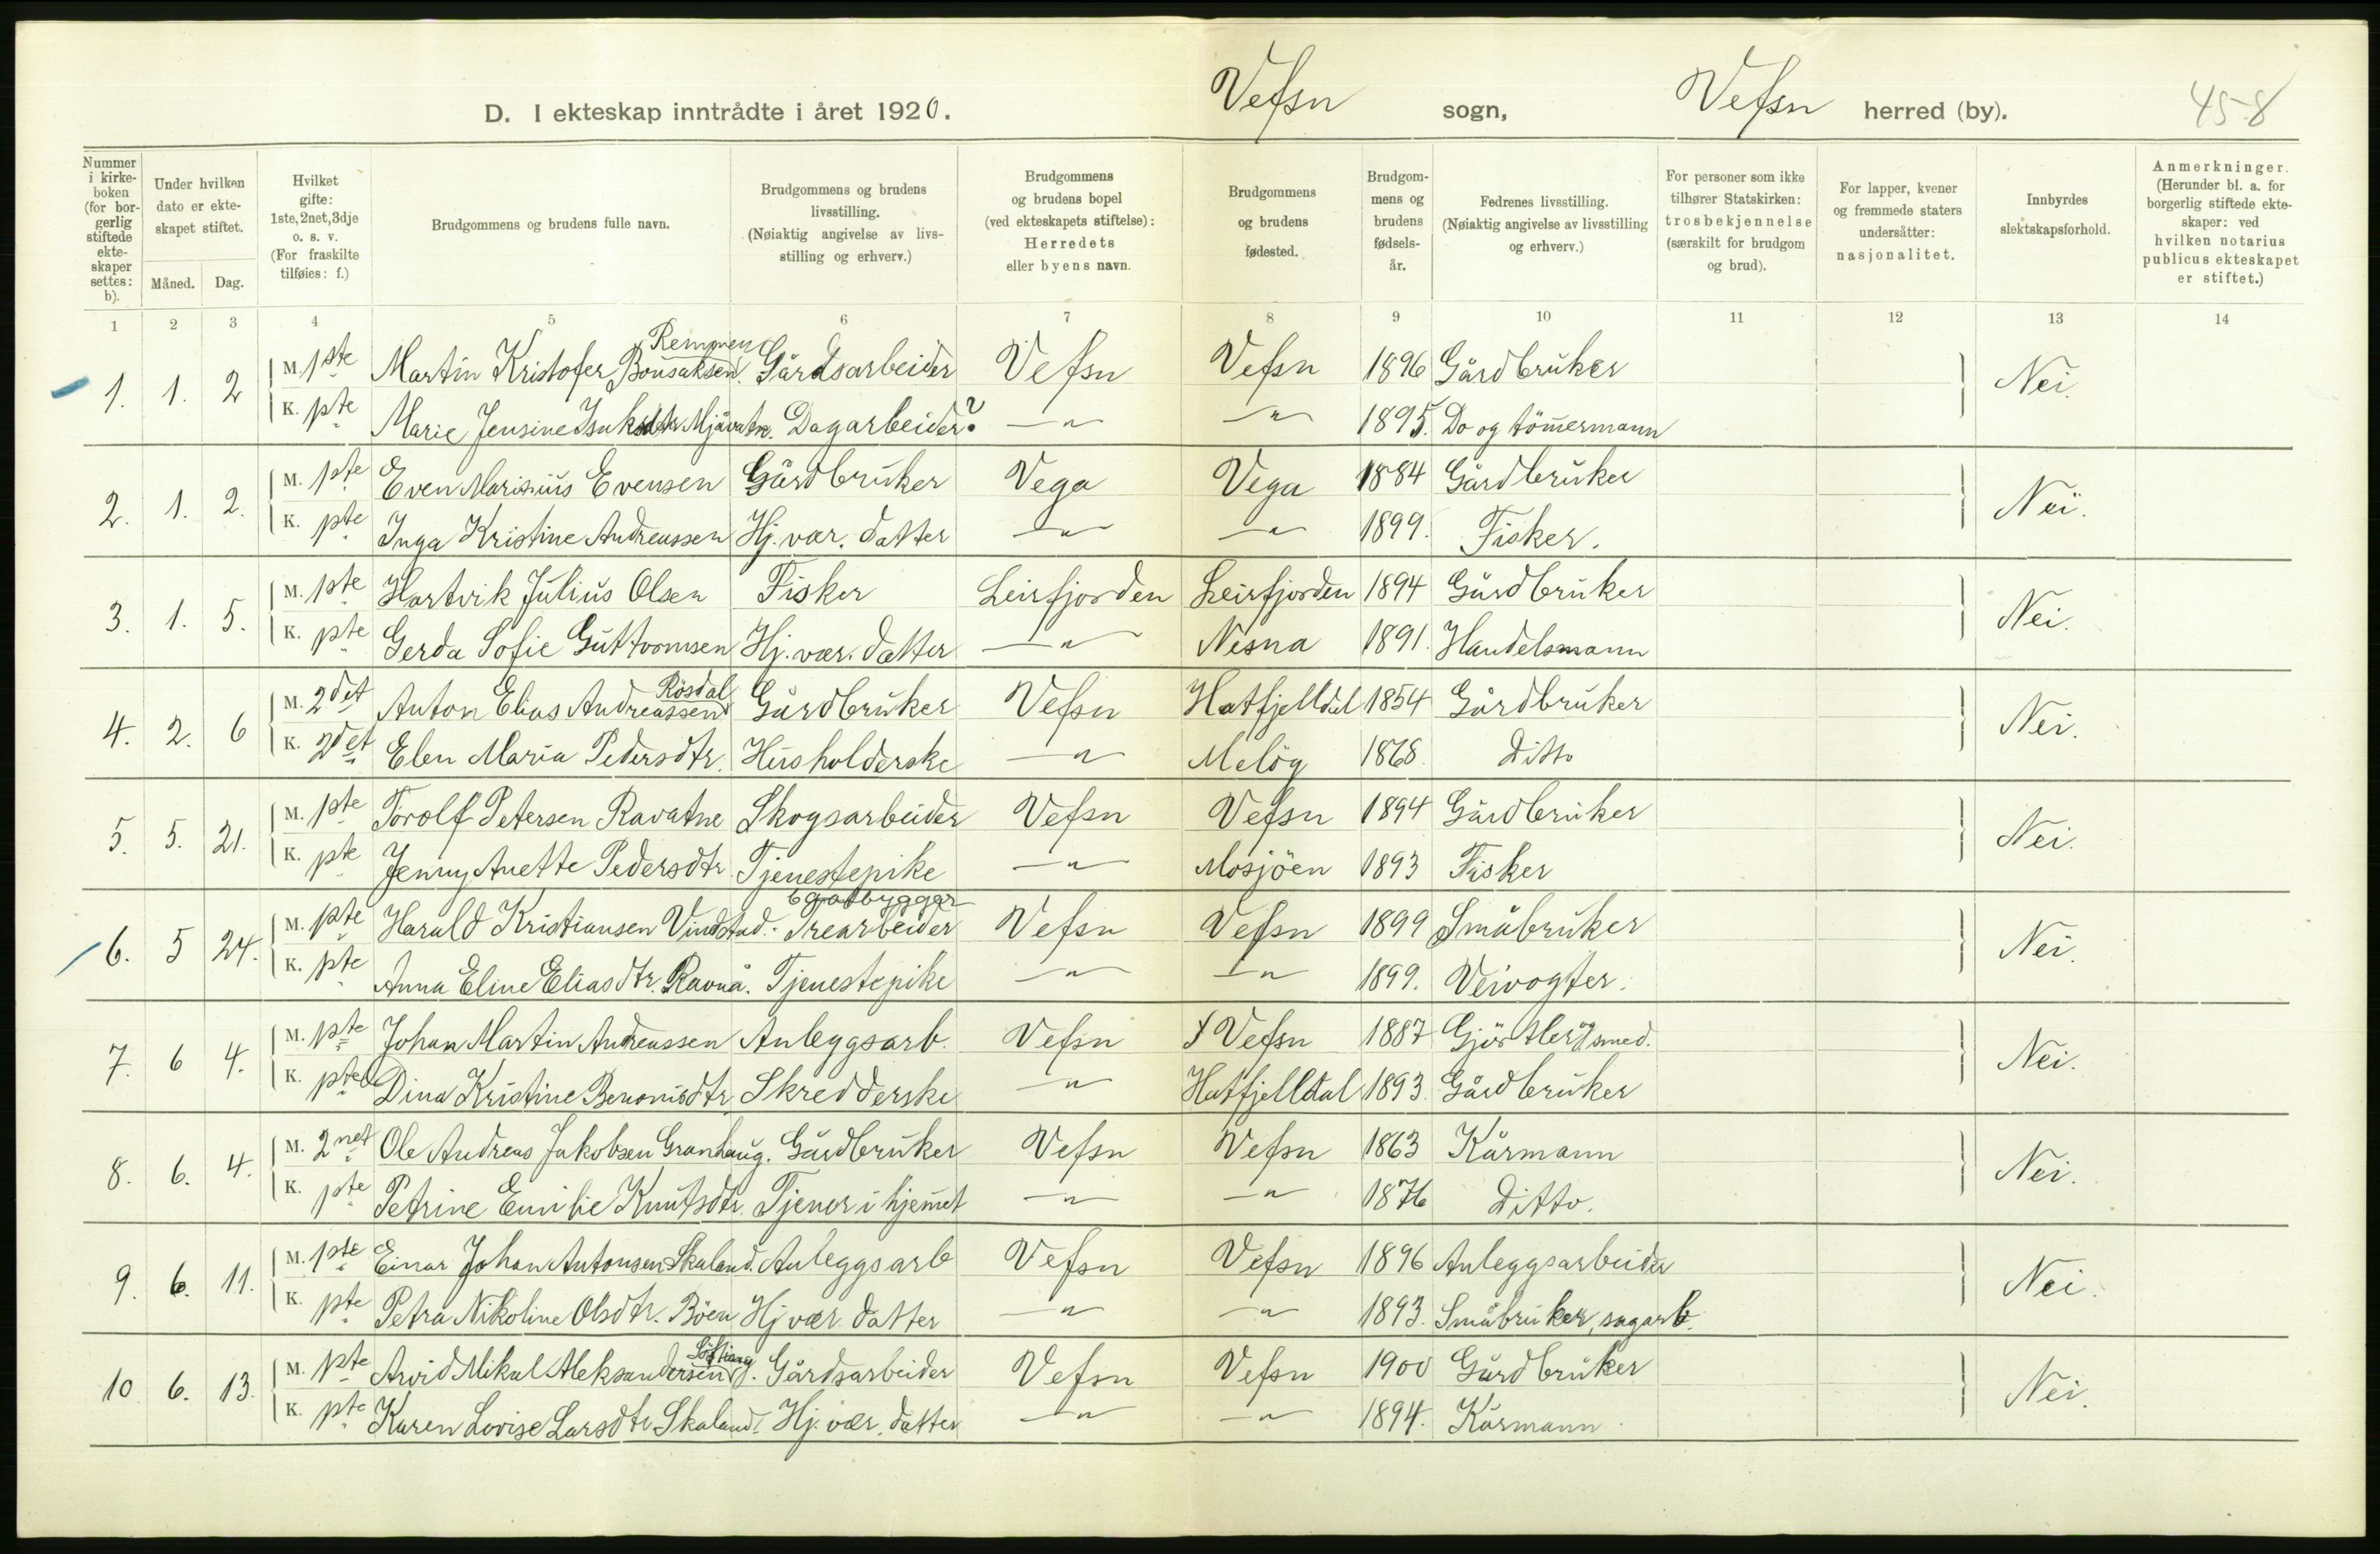 D. I ekteskap inntrådte i året 1920. Vefsn sogn, Vefsn herred (by). 458
Nummer i kirke-boken (for bor-gerlig stiftede ekte-skaper settes: b).
Under hvilken dato er ekte-skapet stiftet.
Måned. Dag.
Hvilket gifte: 1ste, 2net, 3dje o. s. v. (For fraskilte tilføies: f.)
Brudgommens og brudens fulle navn.
Brudgommens og brudens livsstilling. (Nøiaktig angivelse av livs-stilling og erhverv.)
Brudgommens og brudens bopel (ved ekteskapets stiftelse): Herredets eller byens navn.
Brudgommens og brudens fødested.
Brudgom-mens og brudens fødsels-år.
Fedrenes livsstilling. (Nøiaktig angivelse av livsstilling og erhverv.)
For personer som ikke tilhører Statskirken: trosbekjennelse (særskilt for brudgom og brud).
For lapper, kvener og fremmede staters undersåtter: nasjonalitet.
Innbyrdes slektskapsforhold.
Anmerkninger. (Herunder bl. a. for borgerlig stiftede ekte-skaper: ved hvilken notarius publicus ekteskapet er stiftet.)
1 2 3 4 5 6 7 8 9 10 11 12 13 14
Remmen
1. 1. 2 M. 1ste Martin Kristofer Bonsaksen. Gårdsarbeider Vefsn Vefsn 1896 Gårdbruker Nei.
K. 1ste Marie Jensine Mjåvatn. Dagarbeider? —"— —"— 1895. Do og tømermann
2. 1. 2. M. 1ste Even Marinius Evensen Gårdbruker Vega Vega 1884 Gårdbruker Nei.
K. 1ste Inga Kristine Andreassen Hj. vær. datter —"— —"— 1899. Fisker.
3. 1. 5. M. 1ste Hartvik Julius Olsen Fisker Leirfjorden Leirfjorden 1894 Gårdbruker Nei.
K. 1ste Gerda Sofie Guttormsen Hj. vær. datter —"— Nesna 1891. Handelsmann
Røsdal
4. 2. 6 M. 2det Anton Elias Andreassen Gårdbruker Vefsn Hatfjelldal 1854 Gårdbruker Nei.
K. 2det Elen Maria Pedersdtr. Husholderske —"— Meløy 1868 Ditto
5. 5. 21. M. 1ste Torolf Petersen Ravatne Skogsarbeider Vefsn Vefsn 1894 Gårdbruker Nei.
K. 1ste Jenny Anette Pedersdtr. Tjenestepike —"— Mosjøen 1893 Fisker
båtbygger
6. 5 24. M. 1ste Harald Kristiansen Vindstad. Trearbeider Vefsn Vefsn 1899 Småbruker Nei.
K. 1ste Anna Eline Eliasdtr. Ravnå. Tjenestepike —"— —"— 1899. Veivogter.
7. 6 4. M. 1ste Johan Martin Andreassen Anleggsarb. Vefsn Vefsn 1887 Gjørtler og smed. Nei.
K. 1ste Dina Kristine Benonisdtr. Skredderske —"— Hatfjelldal 1893. Gårdbruker
8. 6. 4. M. 2net Ole Andreas Jakobsen Granhaug. Gårdbruker Vefsn Vefsn 1863 Kårmann Nei.
K. 1ste Petrine Emilie Knutsdtr. Tjener i hjemet —"— —"— 1876 Ditto.
9. 6. 11. M. 1ste Einar Johan Antonsen Skaland. Anleggsarb Vefsn Vefsn 1896 Anleggsarbeider Nei.
K. 1ste Petra Nikoline Olsdtr. Bøen Hj vær. datter —"— —"— 1893. Småbruker, sagarb.
Søfting
10 6. 13. M. 1ste Arvid Mikal Aleksandersen. Gårdsarbeider Vefsn Vefsn 1900 Gårdbruker Nei.
K. 1ste Karen Lovise Larsdtr Skaland. Hj. vær. datter —"— —"— 1894. Kårmann